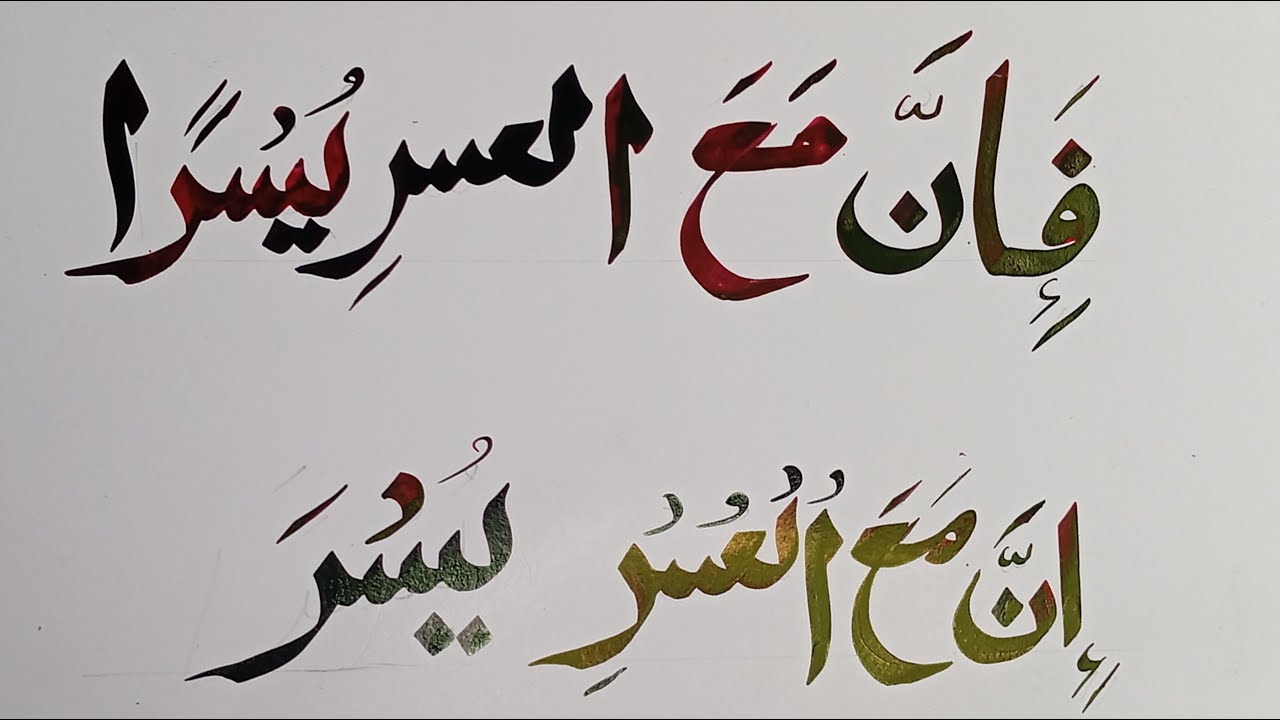 فَإِنَّ مَعَ العسرِ يُسْرًا
إِنَّ مَعَ الْعُسْرِ يُسْرَ